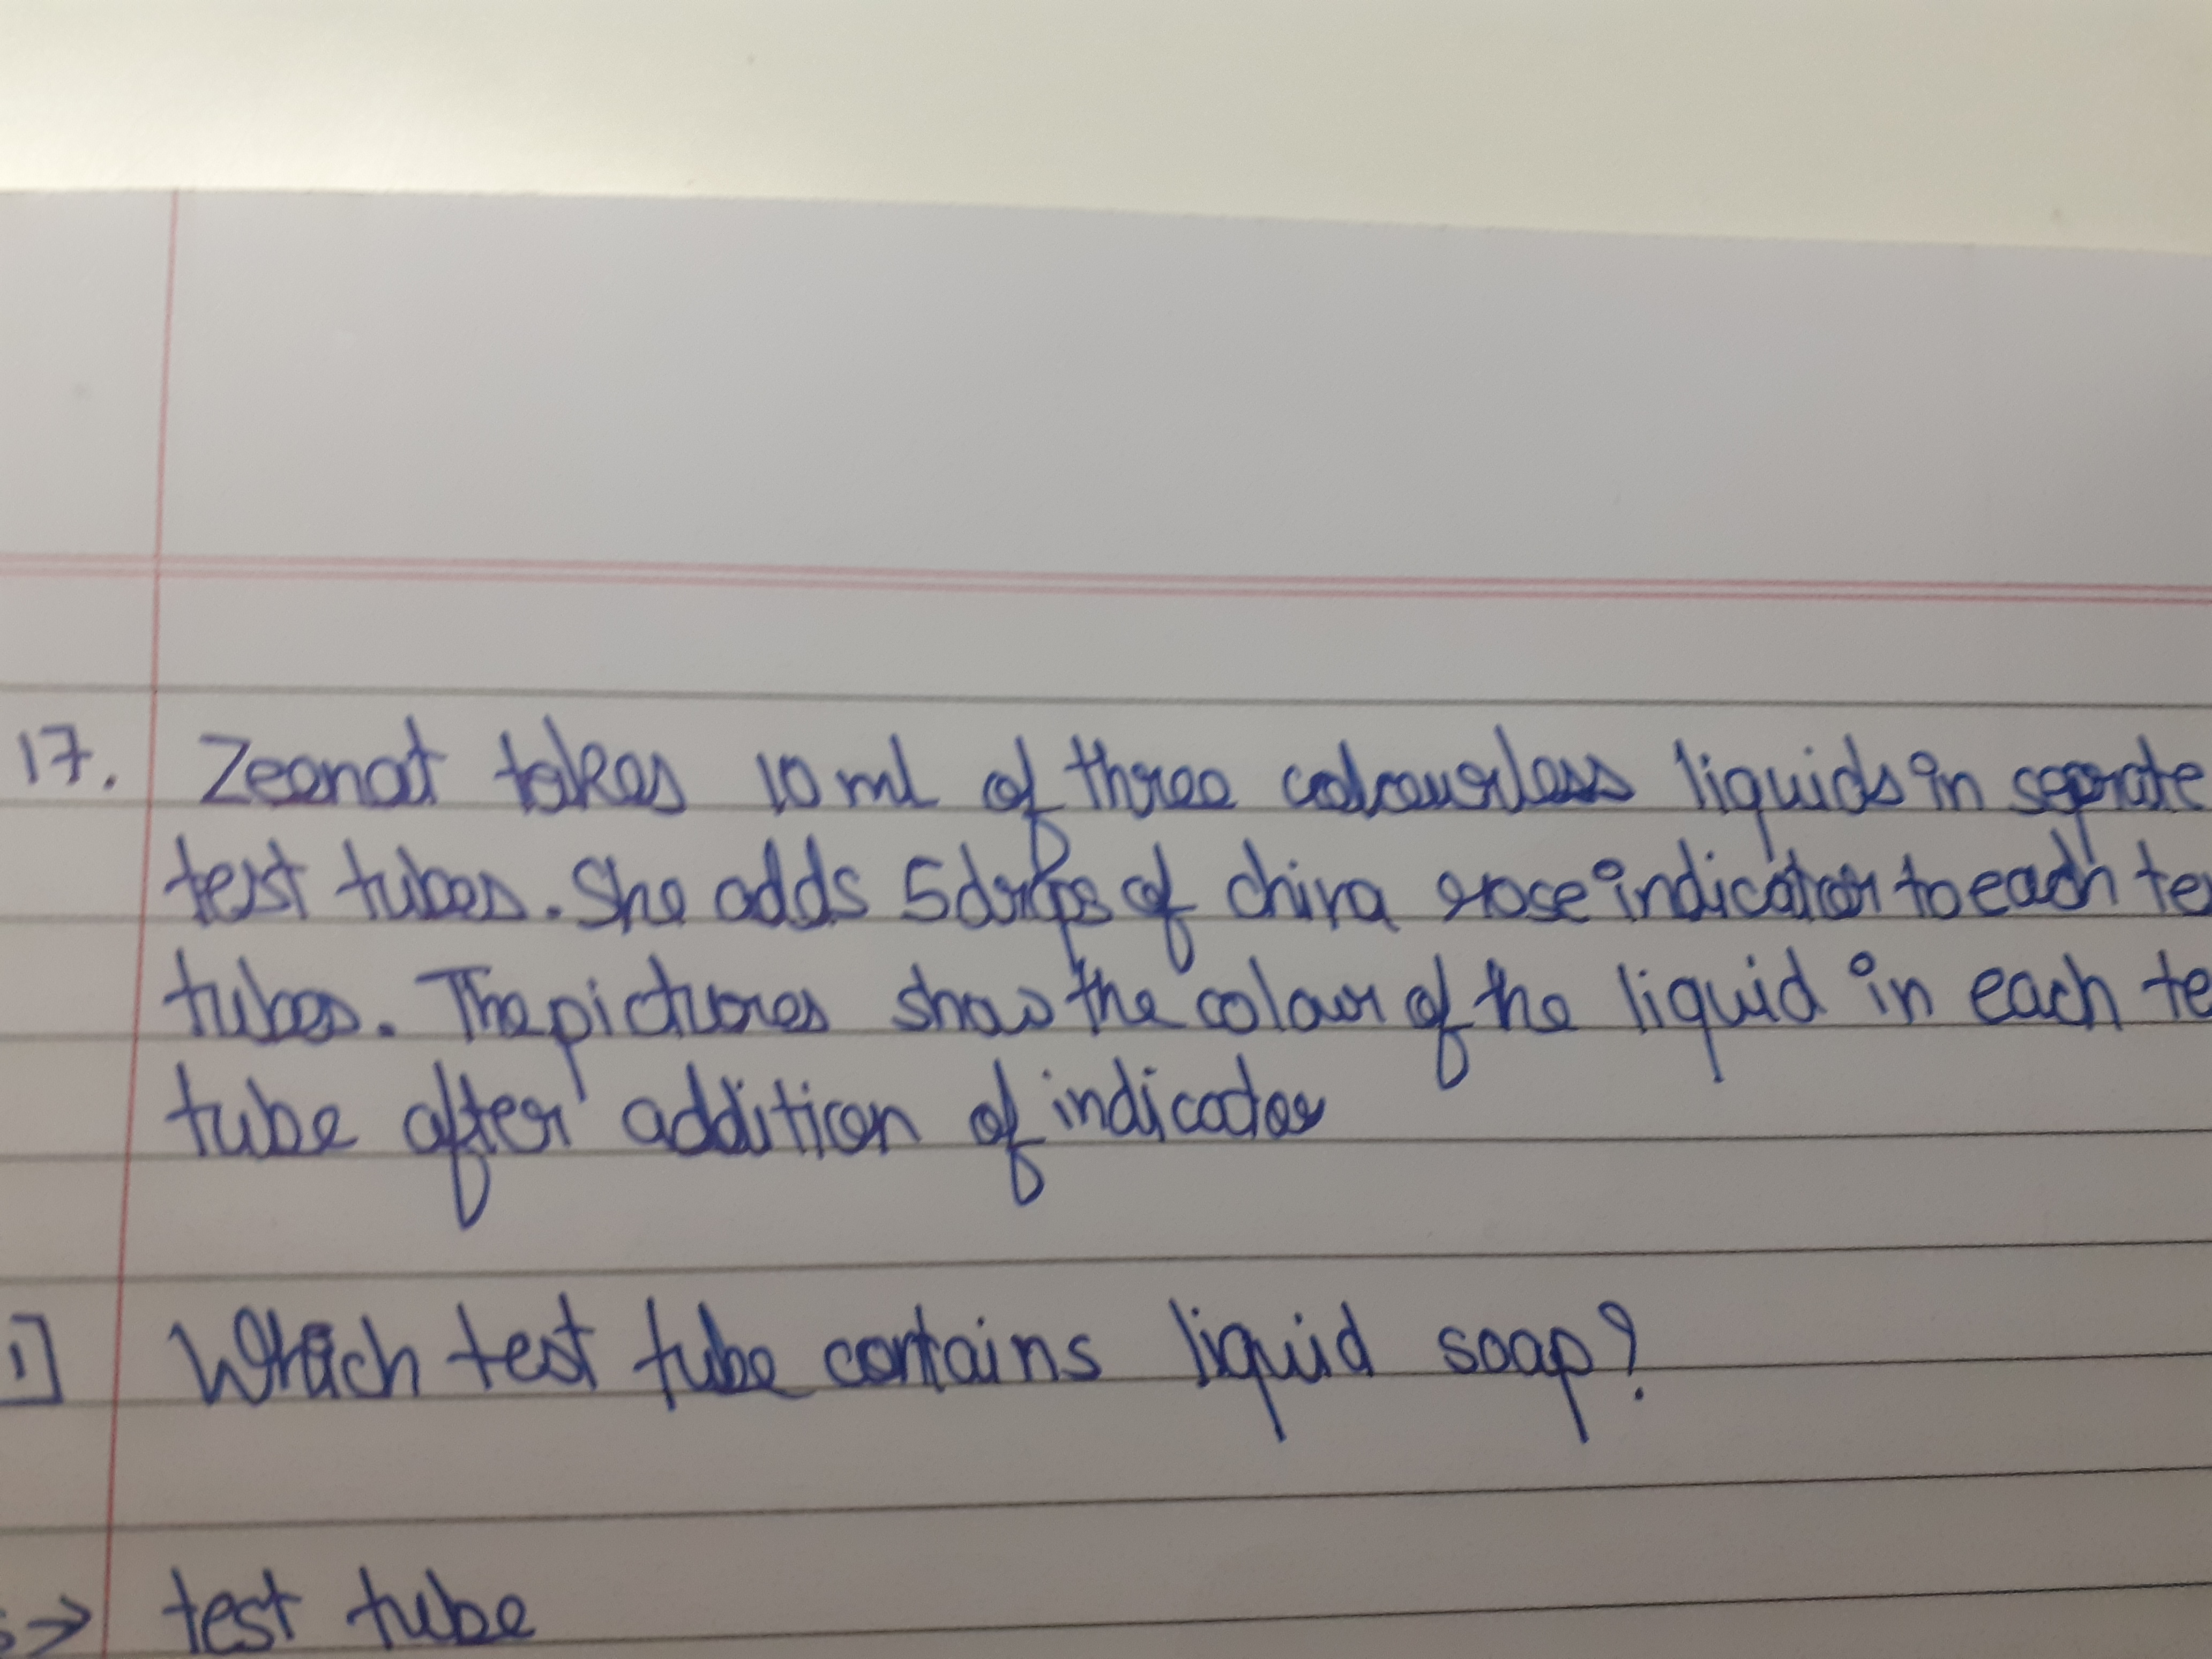 17. Zeenat takes 10 ml of three colourless liquids in seprate
test tubes. She adds 5 drops of china rose indicator to each te
tubes. The pictures show the colour of the liquid in each te
tube after addition of indicator
1] Which test tube contains liquid soap?
→ test tube